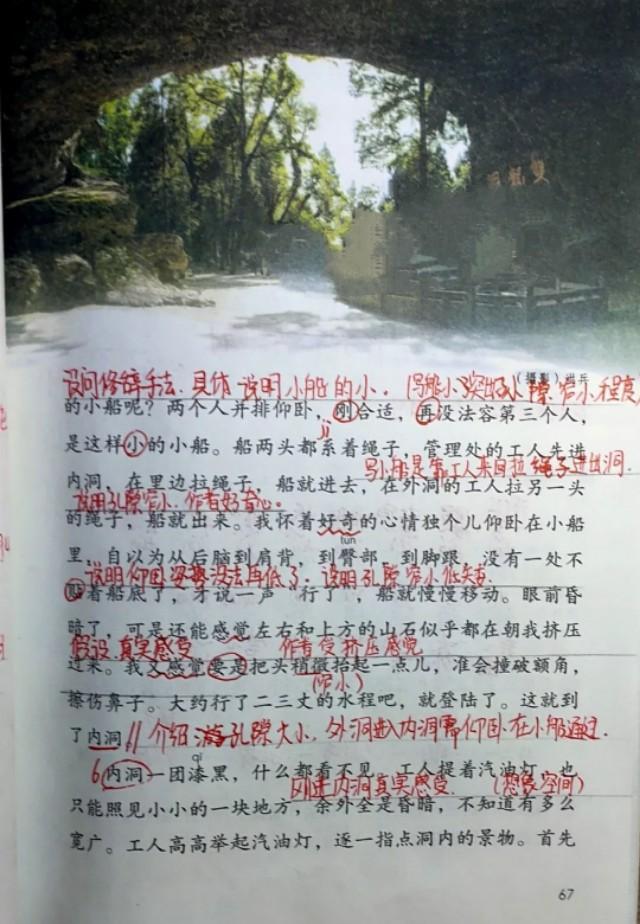 双龙洞
(摄影)
设问修辞手法. 具体说明小船的小. 写船小突出孔隙窄小程度
的小船呢？两个人并排仰卧，刚合适，再没法容第三个人，
是这样小的小船。船两头都系着绳子，管理处的工人先进
jì
写小船是靠工人来回拉绳子进出洞.
内洞，在里边拉绳子，船就进去，在外洞的工人拉另一头
说明孔隙窄小. 作者好奇心.
的绳子，船就出来。我怀着好奇的心情独个儿仰卧在小船
tún
里，自以为从后脑到肩背，到臀部，到脚跟，没有一处不
说明仰卧姿势没法再低了. 说明孔隙窄小低矮.
贴着船底了，才说一声“行了”，船就慢慢移动。眼前昏
暗了，可是还能感觉左右和上方的山石似乎都在朝我挤压
假设 真实感受 作者受挤压感觉
过来。我又感觉要是把头稍微抬起一点儿，准会撞破额角，
(窄小)
擦伤鼻子。大约行了二三丈的水程吧，就登陆了。这就到
了内洞。// 介绍孔隙大小. 外洞进入内洞需仰卧在小船通过.
qī
6 内洞一团漆黑，什么都看不见。工人提着汽油灯，也
刚进内洞真实感受. (想象空间)
只能照见小小的一块地方，余外全是昏暗，不知道有多么
宽广。工人高高举起汽油灯，逐一指点洞内的景物。首先
67